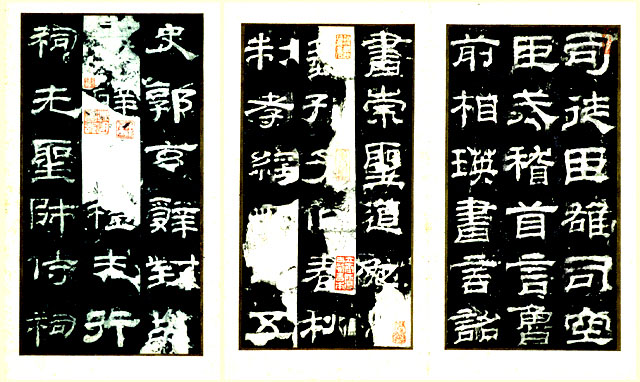 司徒臣雄司空
臣戒稽首言魯
前相瑛書言詔
書崇聖道勉
孔子作春秋
制孝經五
史郭玄辭對故
事辟禮未行
祠先聖師侍祠